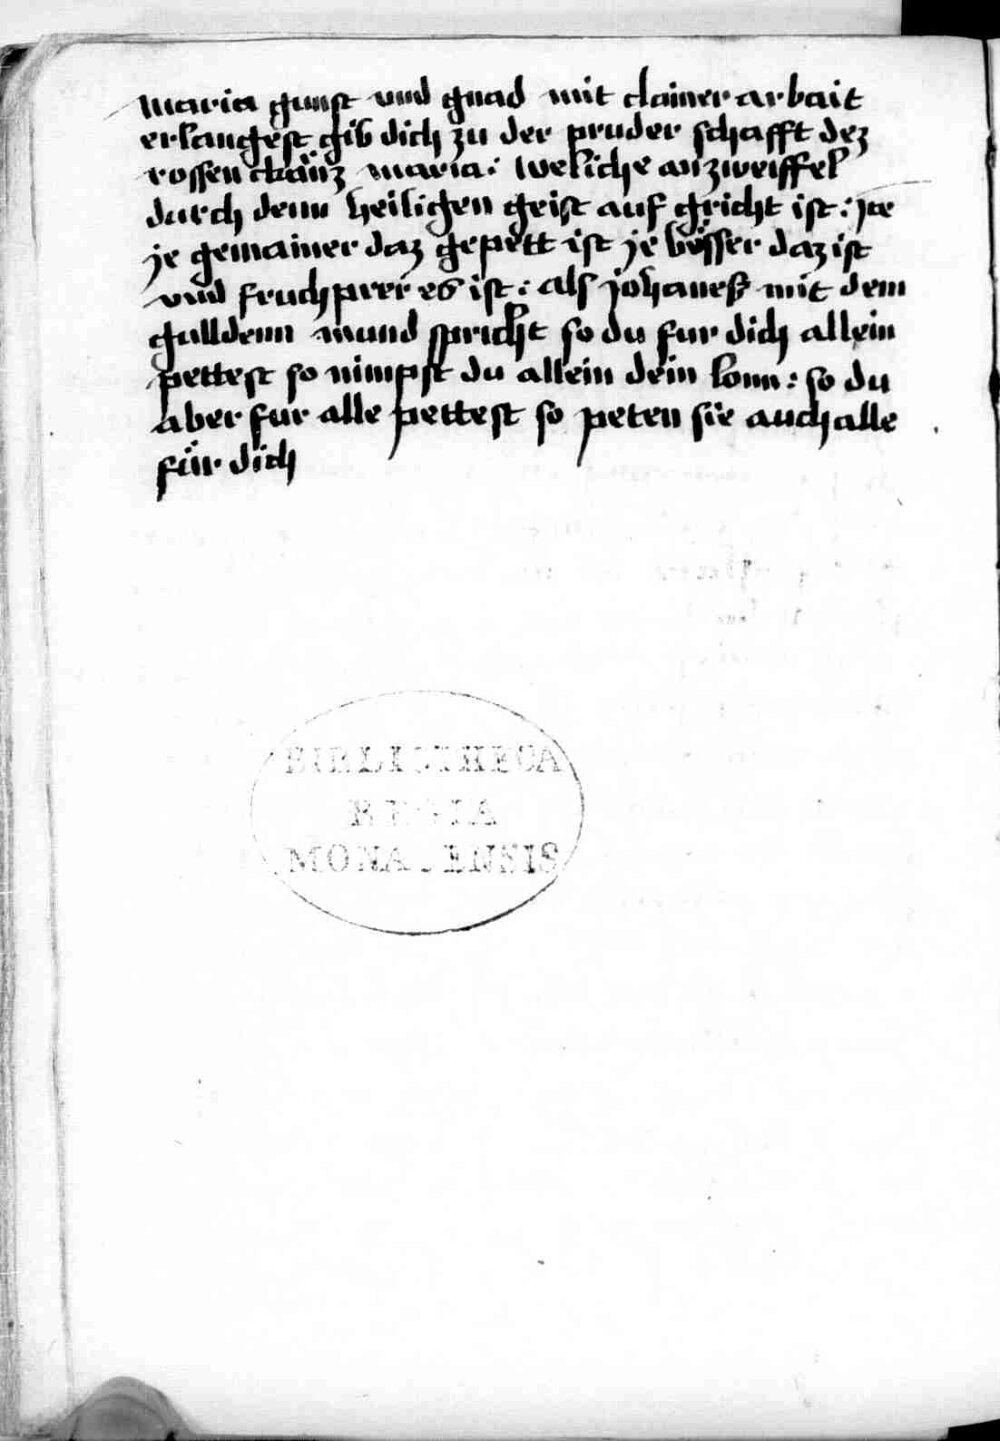 maria gunst vnd gnad mit clainer arbait
erlangest gib dich zu der pruder schafft dez
rossen chränz maria: weliche anzweiffel
durch denn heiligen geist auf gricht ist: Jte
je gemainer daz gepett ist je besser daz ist
vnd fruchprer es ist: als johaneß mit dem
gulldenn mund spricht so du fur dich allein
pettest so nimpst du allein dein lonn: so du
aber fur alle pettest so peten sie auch alle
für dich
BIBLIOTHECA
REGIA
MONACENSIS